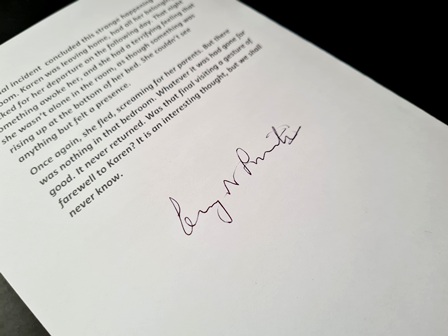 al incident concluded this strange happening
oom. Karen was leaving home, had all her belong
cked for her departure on the following day. That night
omething awoke her, and she had a terrifying feeling that
she wasn't alone in the room, as though something was
rising up at the bottom of her bed. She couldn't see
anything but felt a presence.
Once again, she fled, screaming for her parents. But there
was nothing in that bedroom. Whatever it was had gone for
good. It never returned. Was that final visiting a gesture of
farewell to Karen? It is an interesting thought, but we shall
never know.